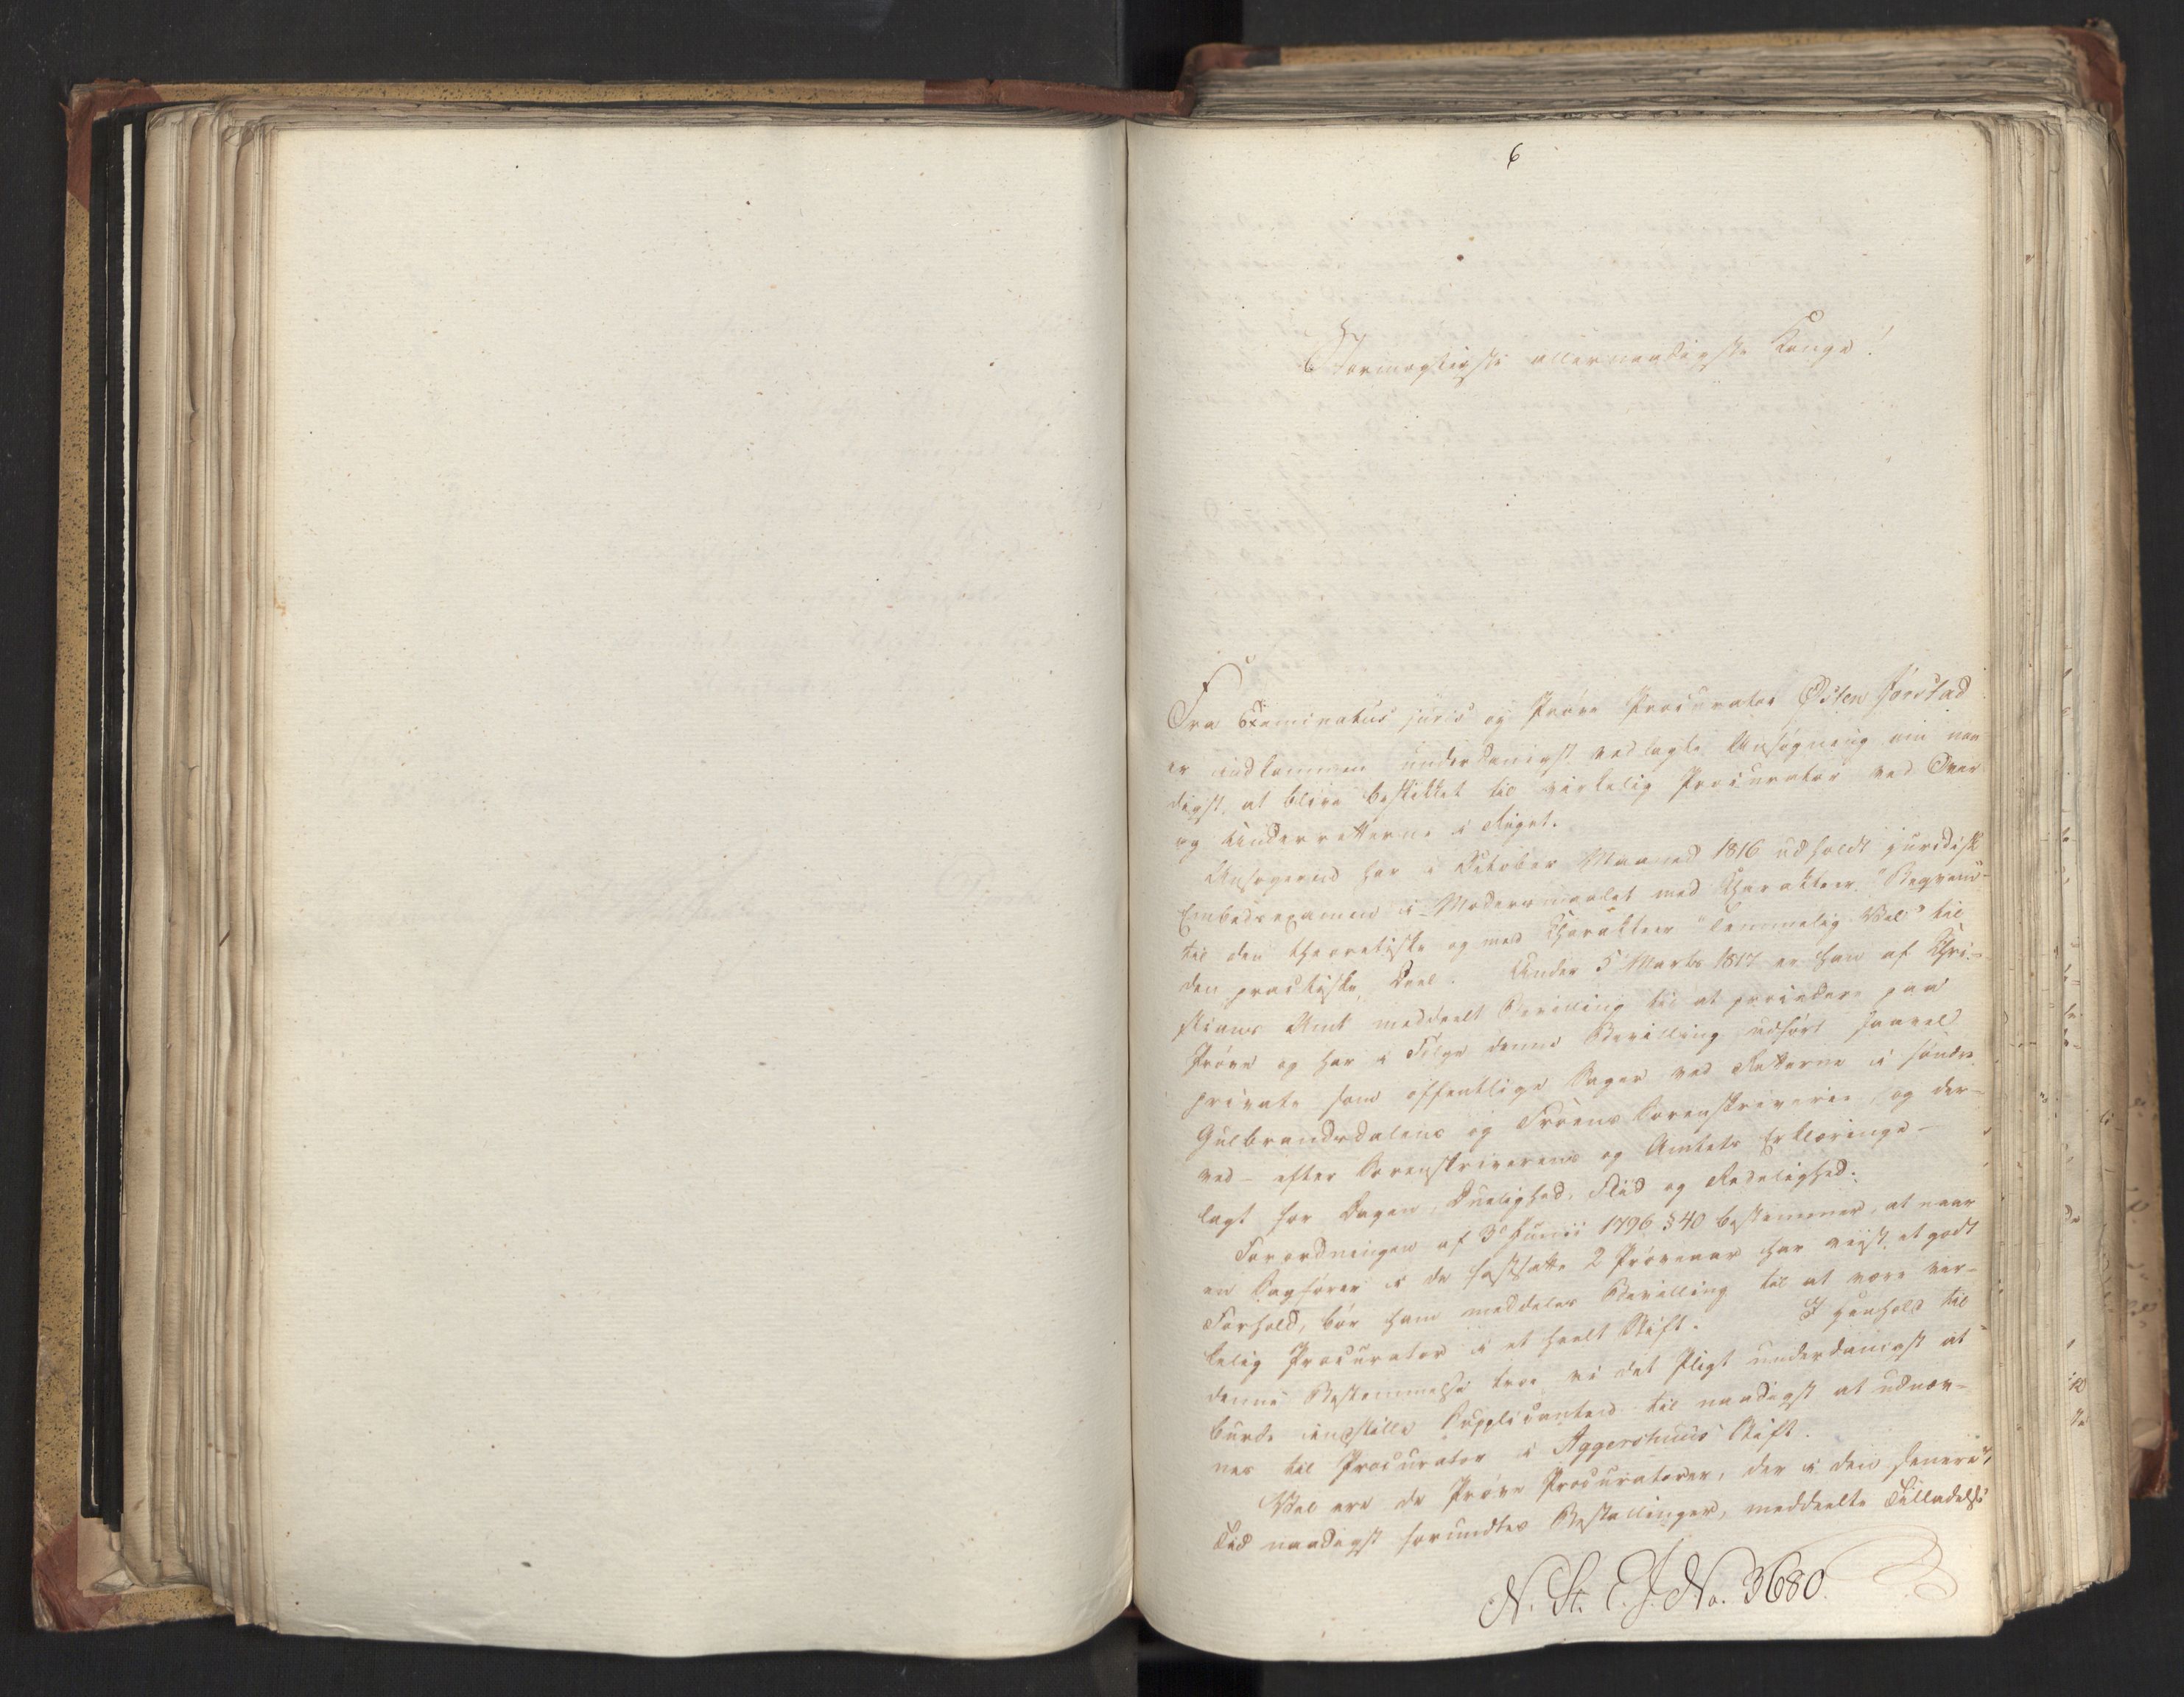 6
Stormægtigste allernaadigste Konge!
Fra Examinatus juris og Prøve Procurator Østen Jørstad
er indkommen underdanigst vedlagte Ansøgning om naa-
digst at blive beskikket til virkelig Procurator ved Over
og Underretterne i Riget.
Ansøgeren har i October Maaned 1816 udholdt juridisk
Embedsexamen i Modersmaalet med Charakteer "Beqvem"
til den theoretiske og med Charakteer "Temmelig Vel" til
den practiske Deel. Under 5 Marts 1817 er han af Chri-
stians Amt meddeelt Bevilling til at procedere paa
Prøve og har i Følge denne Bevilling udført saavel
private som offentlige Sager ved Retterne i søndre
Gulbrandsdalens og Froens Sorenskriverie og der-
ved - efter Sorenskriverens og Amtets Erklæringe -
lagt for Dagen Duelighed, Fliid og Redelighed.
Forordningen af 3 Junii 1796 § 40 bestemmer, at naar
en Sagfører i de fastsatte 2 Prøveaar har viist et godt
Forhold, bør ham meddeles Bevilling til at være vir-
kelig Procurator i et heelt Stift. I Henhold til
denne Bestemmelse troe vi det Pligt underdanigst at
burde indstille Supplicanten til naadigst at udnæv-
nes til Procurator i Aggershuus Stift.
Vel ere de Prøve Procuratorer, der i den senere
Tid naadigst forundtes Bestallinger, meddeelte Tilladelse
N. St. E. J. No. 3680.